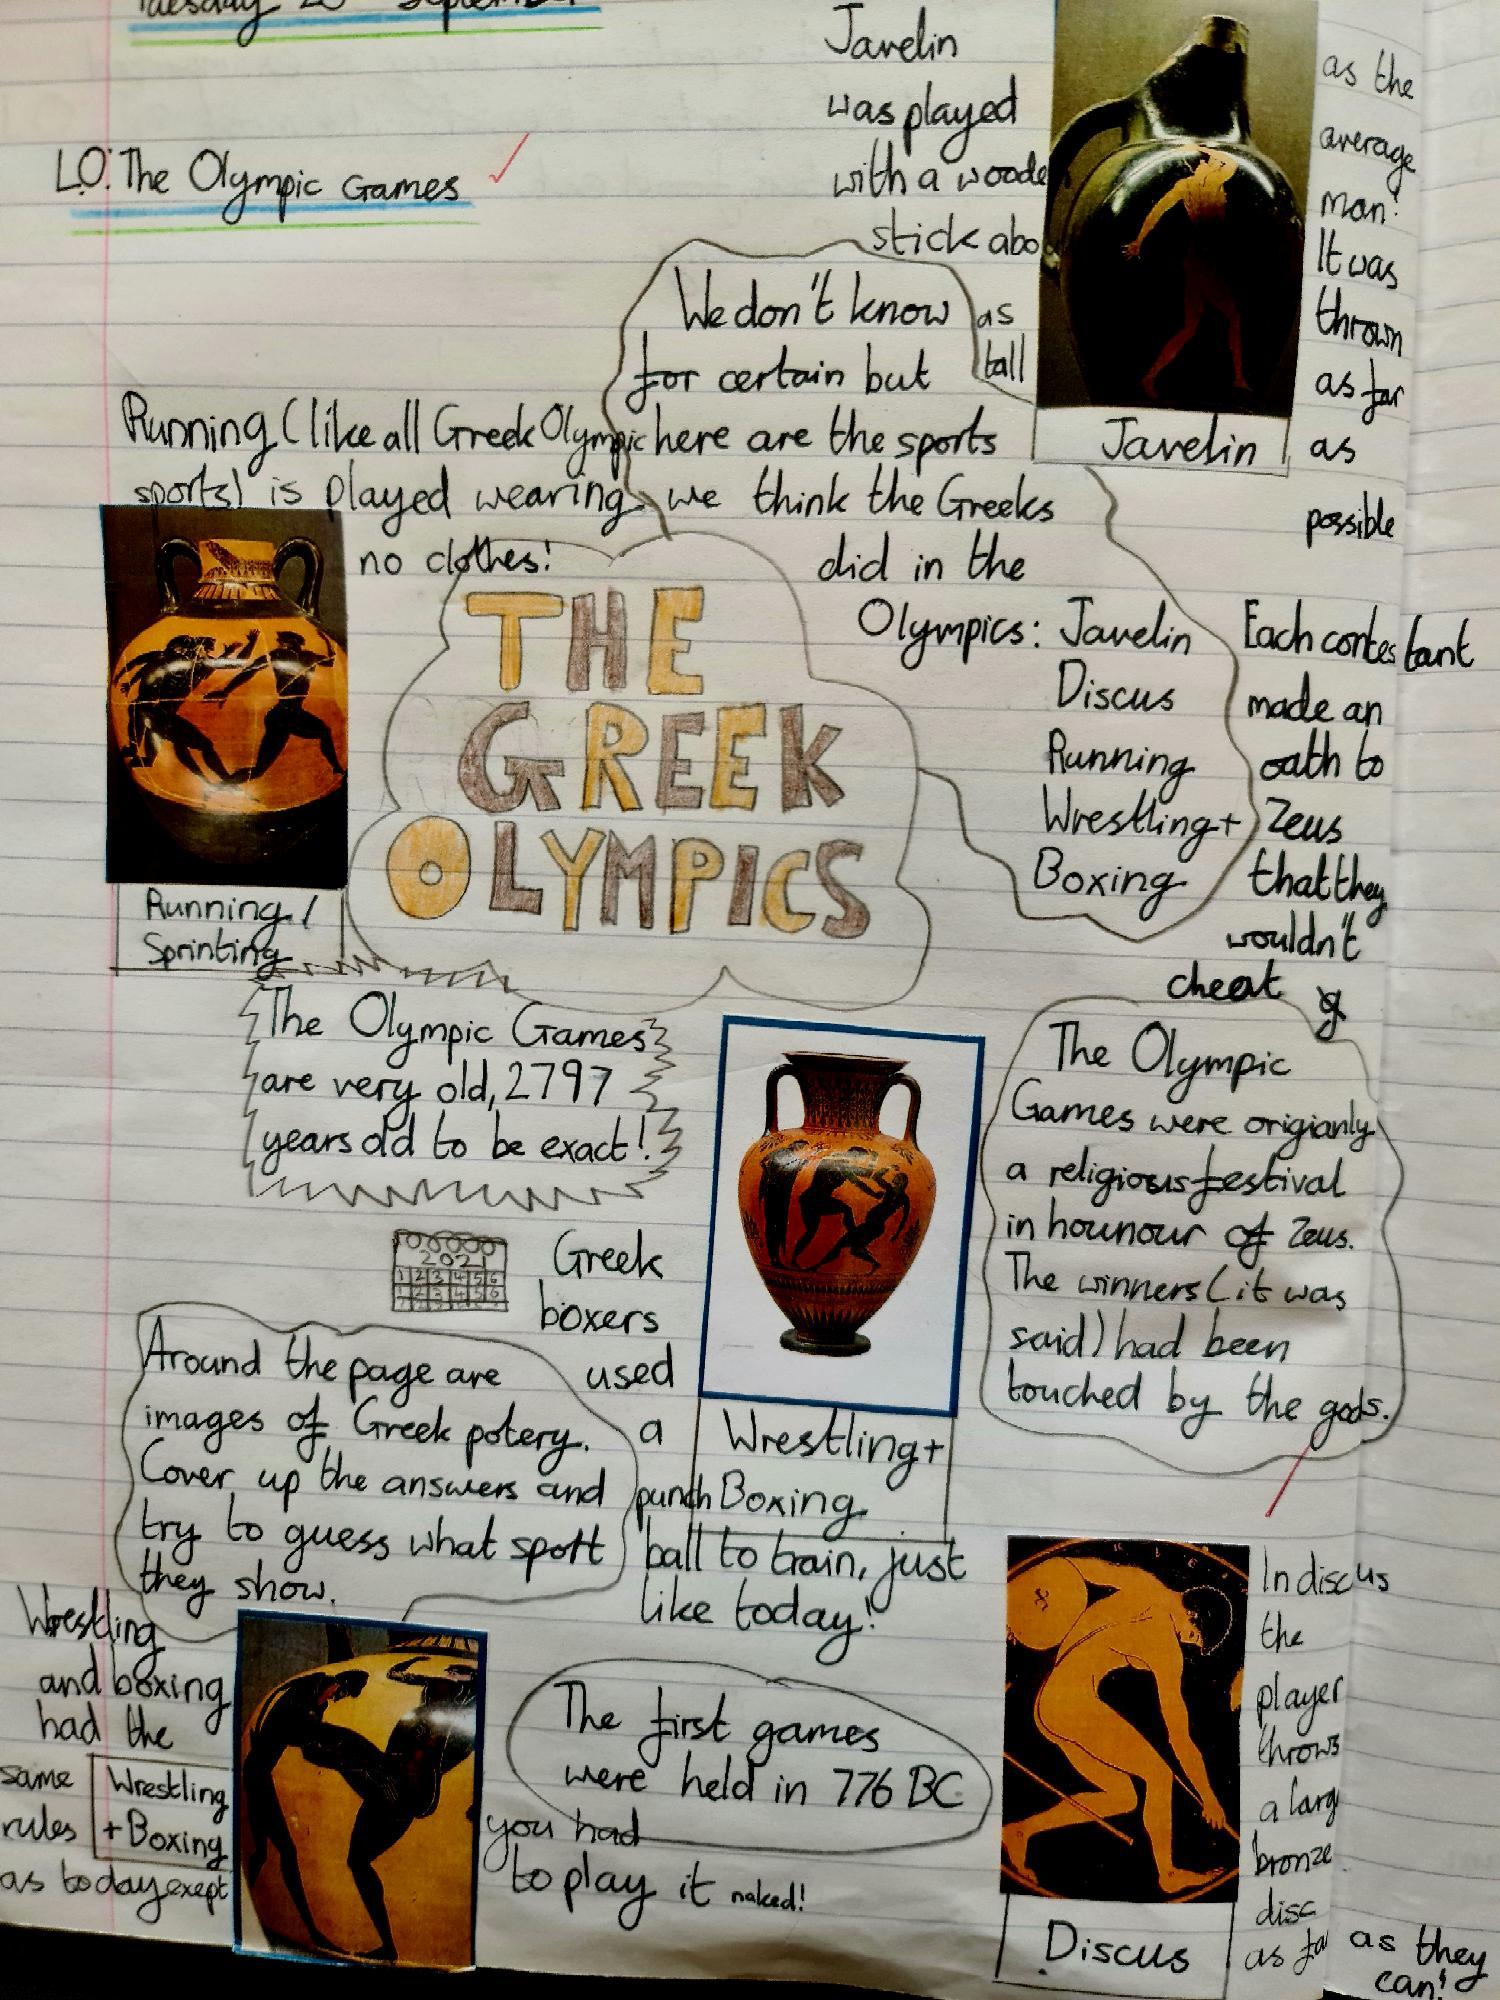 Tuesday 28th September
L.O: The Olympic Games
Javelin
was played
with a woode
stick abo
as
tall
as the
average
man!
It was
thrown
as far
as
possible
Javelin
We don't know
for certain but
here are the sports
we think the Greeks
did in the
Olympics: Javelin
Discus
Running
Wrestling+
Boxing
Running (like all Greek Olympic
sports) is played wearing
no clothes!
Running/
Sprinting
THE
GREEK
OLYMPICS
Each contestant
made an
oath to
Zeus
that they
wouldn't
cheat
The Olympic Games
are very old, 2797
years old to be exact!
2021
1 2 3 4 5 6
The Olympic
Games were origianly
a religious festival
in hounour of Zeus.
The winners (it was
said) had been
touched by the gods.
Greek
boxers
used
a
punch
ball to train, just
like today!
Wrestling+
Boxing
Around the page are
images of Greek potery.
Cover up the answers and
try to guess what sport
they show.
Wrestling
and boxing
had the
same
rules
as today exept
you had
to play it naked!
Wrestling
+Boxing
The first games
were held in 776 BC
In discus
the
player
throws
a larg
bronze
disc
as fa as they
can!
Discus